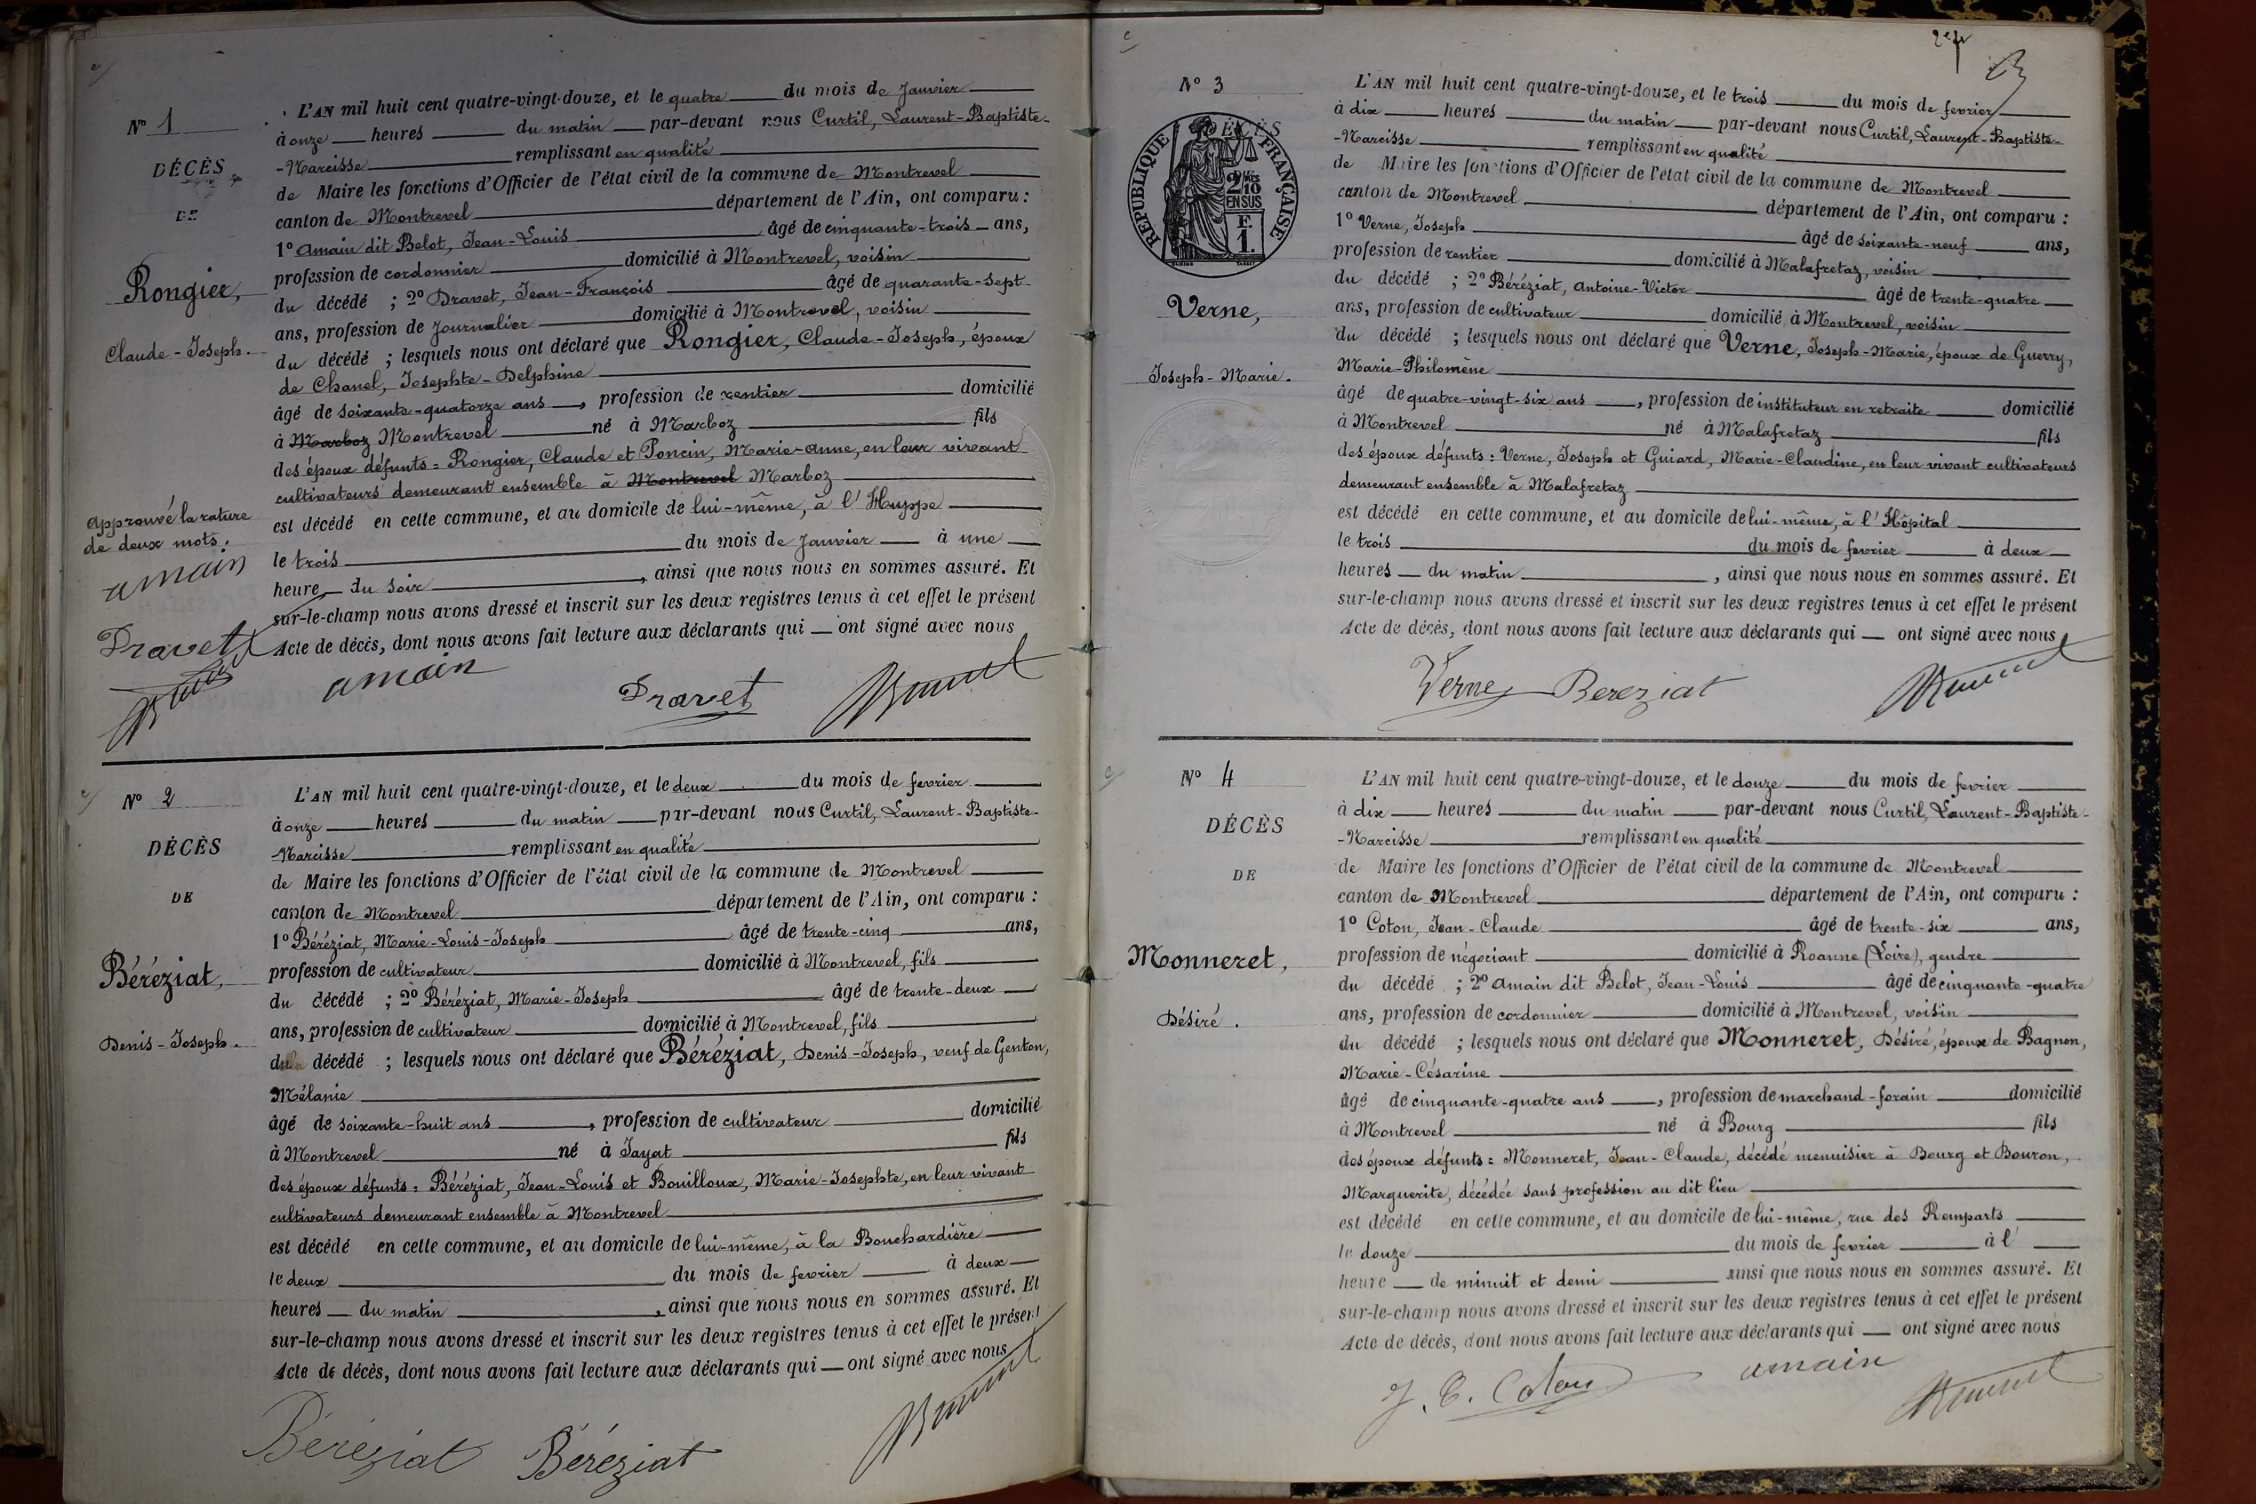 N° 1
DÉCÈS
DE
Rongier,
Claude-Joseph.
approuvé la rature
de deux mots.
amain
Pravet
L'AN mil huit cent quatre-vingt-douze, et le quatre du mois de Janvier
à onze heures du matin par-devant nous Curtil, Laurent-Baptiste-
-Narcisse remplissant en qualité
de Maire les fonctions d'Officier de l'état civil de la commune de Montrevel
canton de Montrevel département de l'Ain, ont comparu :
1° Amain dit Belot, Jean-Louis âgé de cinquante-trois ans,
profession de cordonnier domicilié à Montrevel, voisin
du décédé ; 2° Pravet, Jean-François âgé de quarante-sept
ans, profession de Journalier domicilié à Montrevel, voisin
du décédé ; lesquels nous ont déclaré que Rongier, Claude-Joseph, époux
de Chanel, Josephte-Delphine
âgé de soixante-quatorze ans, profession de rentier domicilié
à Marboz Montrevel né à Marboz fils
des époux défunts = Rongier, Claude et Poncin, Marie-Anne, en leur vivant
cultivateurs demeurant ensemble à Montrevel Marboz
est décédé en cette commune, et au domicile de lui-même, à l'Huppe
le trois du mois de Janvier à une
heure du soir, ainsi que nous nous en sommes assuré. Et
sur-le-champ nous avons dressé et inscrit sur les deux registres tenus à cet effet le présent
Acte de décès, dont nous avons fait lecture aux déclarants qui ont signé avec nous
amain Pravet
N° 2
DÉCÈS
DE
Béréziat,
Denis-Joseph.
L'AN mil huit cent quatre-vingt-douze, et le deux du mois de fevrier
à onze heures du matin par-devant nous Curtil, Laurent-Baptiste-
-Narcisse remplissant en qualité
de Maire les fonctions d'Officier de l'état civil de la commune de Montrevel
canton de Montrevel département de l'Ain, ont comparu :
1° Béréziat, Marie-Louis-Joseph âgé de trente-cinq ans,
profession de cultivateur domicilié à Montrevel, fils
du décédé ; 2° Béréziat, Marie-Joseph âgé de trente-deux
ans, profession de cultivateur domicilié à Montrevel, fils
du décédé ; lesquels nous ont déclaré que Béréziat, Denis-Joseph, veuf de Genton,
Mélanie
âgé de soixante-huit ans, profession de cultivateur domicilié
à Montrevel né à Jayat fils
des époux défunts : Béréziat, Jean-Louis et Bouilloux, Marie-Josephte, en leur vivant
cultivateurs demeurant ensemble à Montrevel
est décédé en cette commune, et au domicile de lui-même, à la Bouchardière
le deux du mois de fevrier à deux
heures du matin, ainsi que nous nous en sommes assuré. Et
sur-le-champ nous avons dressé et inscrit sur les deux registres tenus à cet effet le présent
Acte de décès, dont nous avons fait lecture aux déclarants qui ont signé avec nous
Béréziat Béréziat
N° 3
DÉCÈS
RÉPUBLIQUE FRANÇAISE
2/10
EN SUS
F.
1.
Verne,
Joseph-Marie.
L'AN mil huit cent quatre-vingt-douze, et le trois du mois de fevrier
à dix heures du matin par-devant nous Curtil, Laurent-Baptiste-
-Narcisse remplissant en qualité
de Maire les fonctions d'Officier de l'état civil de la commune de Montrevel
canton de Montrevel département de l'Ain, ont comparu :
1° Verne, Joseph âgé de soixante-neuf ans,
profession de rentier domicilié à Malafretaz, voisin
du décédé ; 2° Béréziat, Antoine-Victor âgé de trente-quatre
ans, profession de cultivateur domicilié à Montrevel, voisin
du décédé ; lesquels nous ont déclaré que Verne, Joseph-Marie, époux de Guerry,
Marie-Philomène
âgé de quatre-vingt-six ans, profession de instituteur en retraite domicilié
à Montrevel né à Malafretaz fils
des époux défunts : Verne, Joseph et Guiard, Marie-Claudine, en leur vivant cultivateurs
demeurant ensemble à Malafretaz
est décédé en cette commune, et au domicile de lui-même, à l'Hôpital
le trois du mois de fevrier à deux
heures du matin, ainsi que nous nous en sommes assuré. Et
sur-le-champ nous avons dressé et inscrit sur les deux registres tenus à cet effet le présent
Acte de décès, dont nous avons fait lecture aux déclarants qui ont signé avec nous
Verne Bereziat
N° 4
DÉCÈS
DE
Monneret,
Désiré.
L'AN mil huit cent quatre-vingt-douze, et le douze du mois de fevrier
à dix heures du matin par-devant nous Curtil, Laurent-Baptiste-
-Narcisse remplissant en qualité
de Maire les fonctions d'Officier de l'état civil de la commune de Montrevel
canton de Montrevel département de l'Ain, ont comparu :
1° Coton, Jean-Claude âgé de trente-six ans,
profession de négociant domicilié à Roanne (Loire), gendre
du décédé ; 2° Amain dit Belot, Jean-Louis âgé de cinquante-quatre
ans, profession de cordonnier domicilié à Montrevel, voisin
du décédé ; lesquels nous ont déclaré que Monneret, Désiré, époux de Bagnon,
Marie-Césarine
âgé de cinquante-quatre ans, profession de marchand-forain domicilié
à Montrevel né à Bourg fils
des époux défunts = Monneret, Jean-Claude, décédé menuisier à Bourg et Bouron,
Marguerite, décédée sans profession au dit lieu
est décédé en cette commune, et au domicile de lui-même, rue des Remparts
le douze du mois de fevrier à l'
heure de minuit et demi ainsi que nous nous en sommes assuré. Et
sur-le-champ nous avons dressé et inscrit sur les deux registres tenus à cet effet le présent
Acte de décès, dont nous avons fait lecture aux déclarants qui ont signé avec nous
J. C. Coton amain